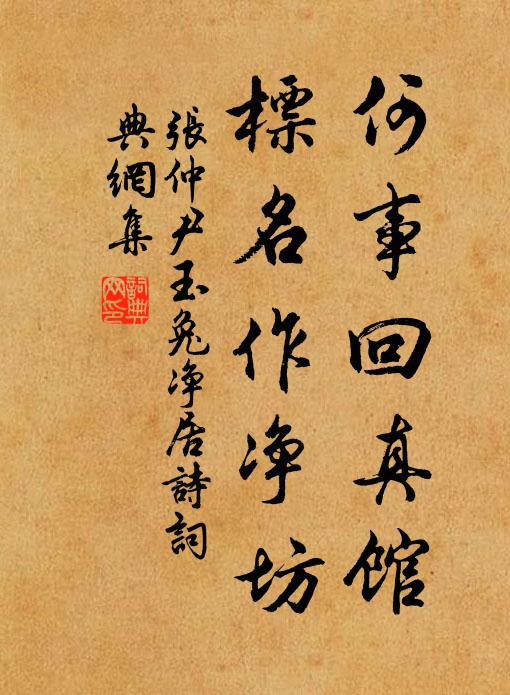 何事回真馆
標名作净坊
張仲尹玉兔净居詩詞
典網集
詞典
网印